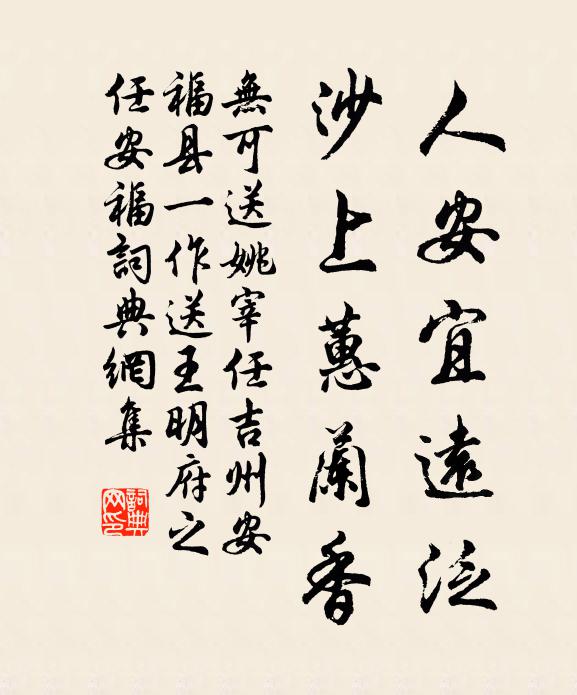 人安宜遠泛
沙上蕙蘭香
無可送姚宰任吉州安
福县一作送王明府之
任安福詞典網集
詞典网印